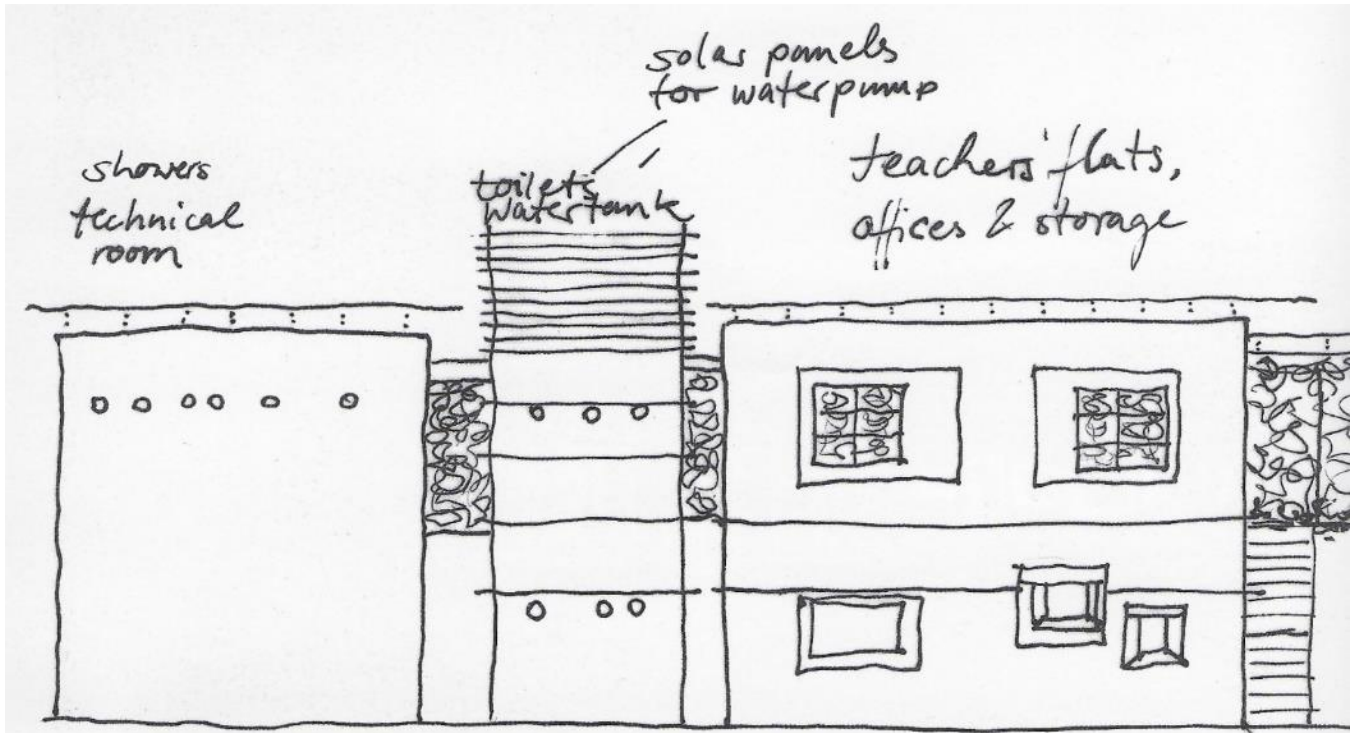 solar panels
for waterpump
showers
technical
room
toilets
watertank
teachers' flats,
offices & storage